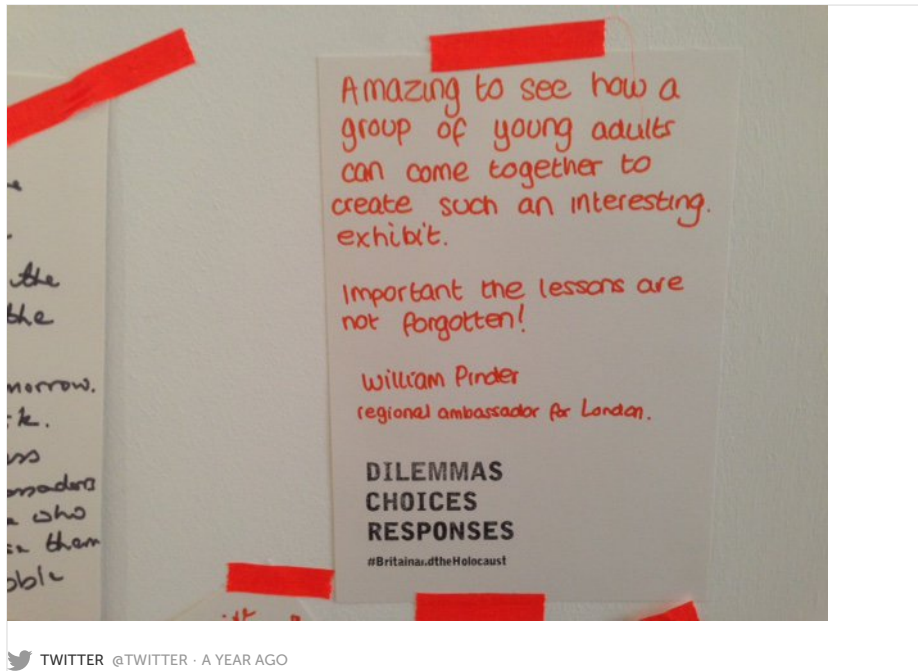 Amazing to see how a
group of young adults
can come together to
create such an interesting.
exhibit.
Important the lessons are
not forgotten!
William Pinder
regional ambassador for London.
DILEMMAS
CHOICES
RESPONSES
#BritainandtheHolocaust
the
the
morrow.
who
them
TWITTER @TWITTER · A YEAR AGO